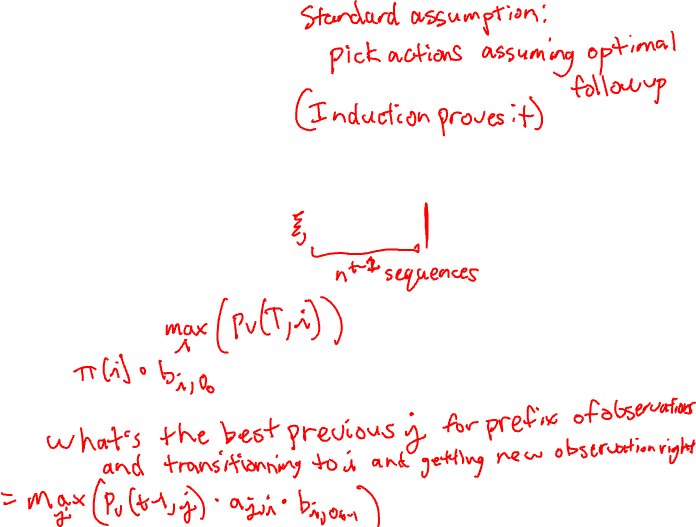 Standard assumption:
pick actions assuming optimal
followup
(Induction proves it)
ξ,
n^{t-1} sequences
max_i (P_v(T,i))
π(i) · b_{i,o_0}
what's the best previous j for prefix of observations
and transitionning to i and getting new observation right
= max_j (P_v(t-1,j) · a_{j,i} · b_{i,o_{t-1}})